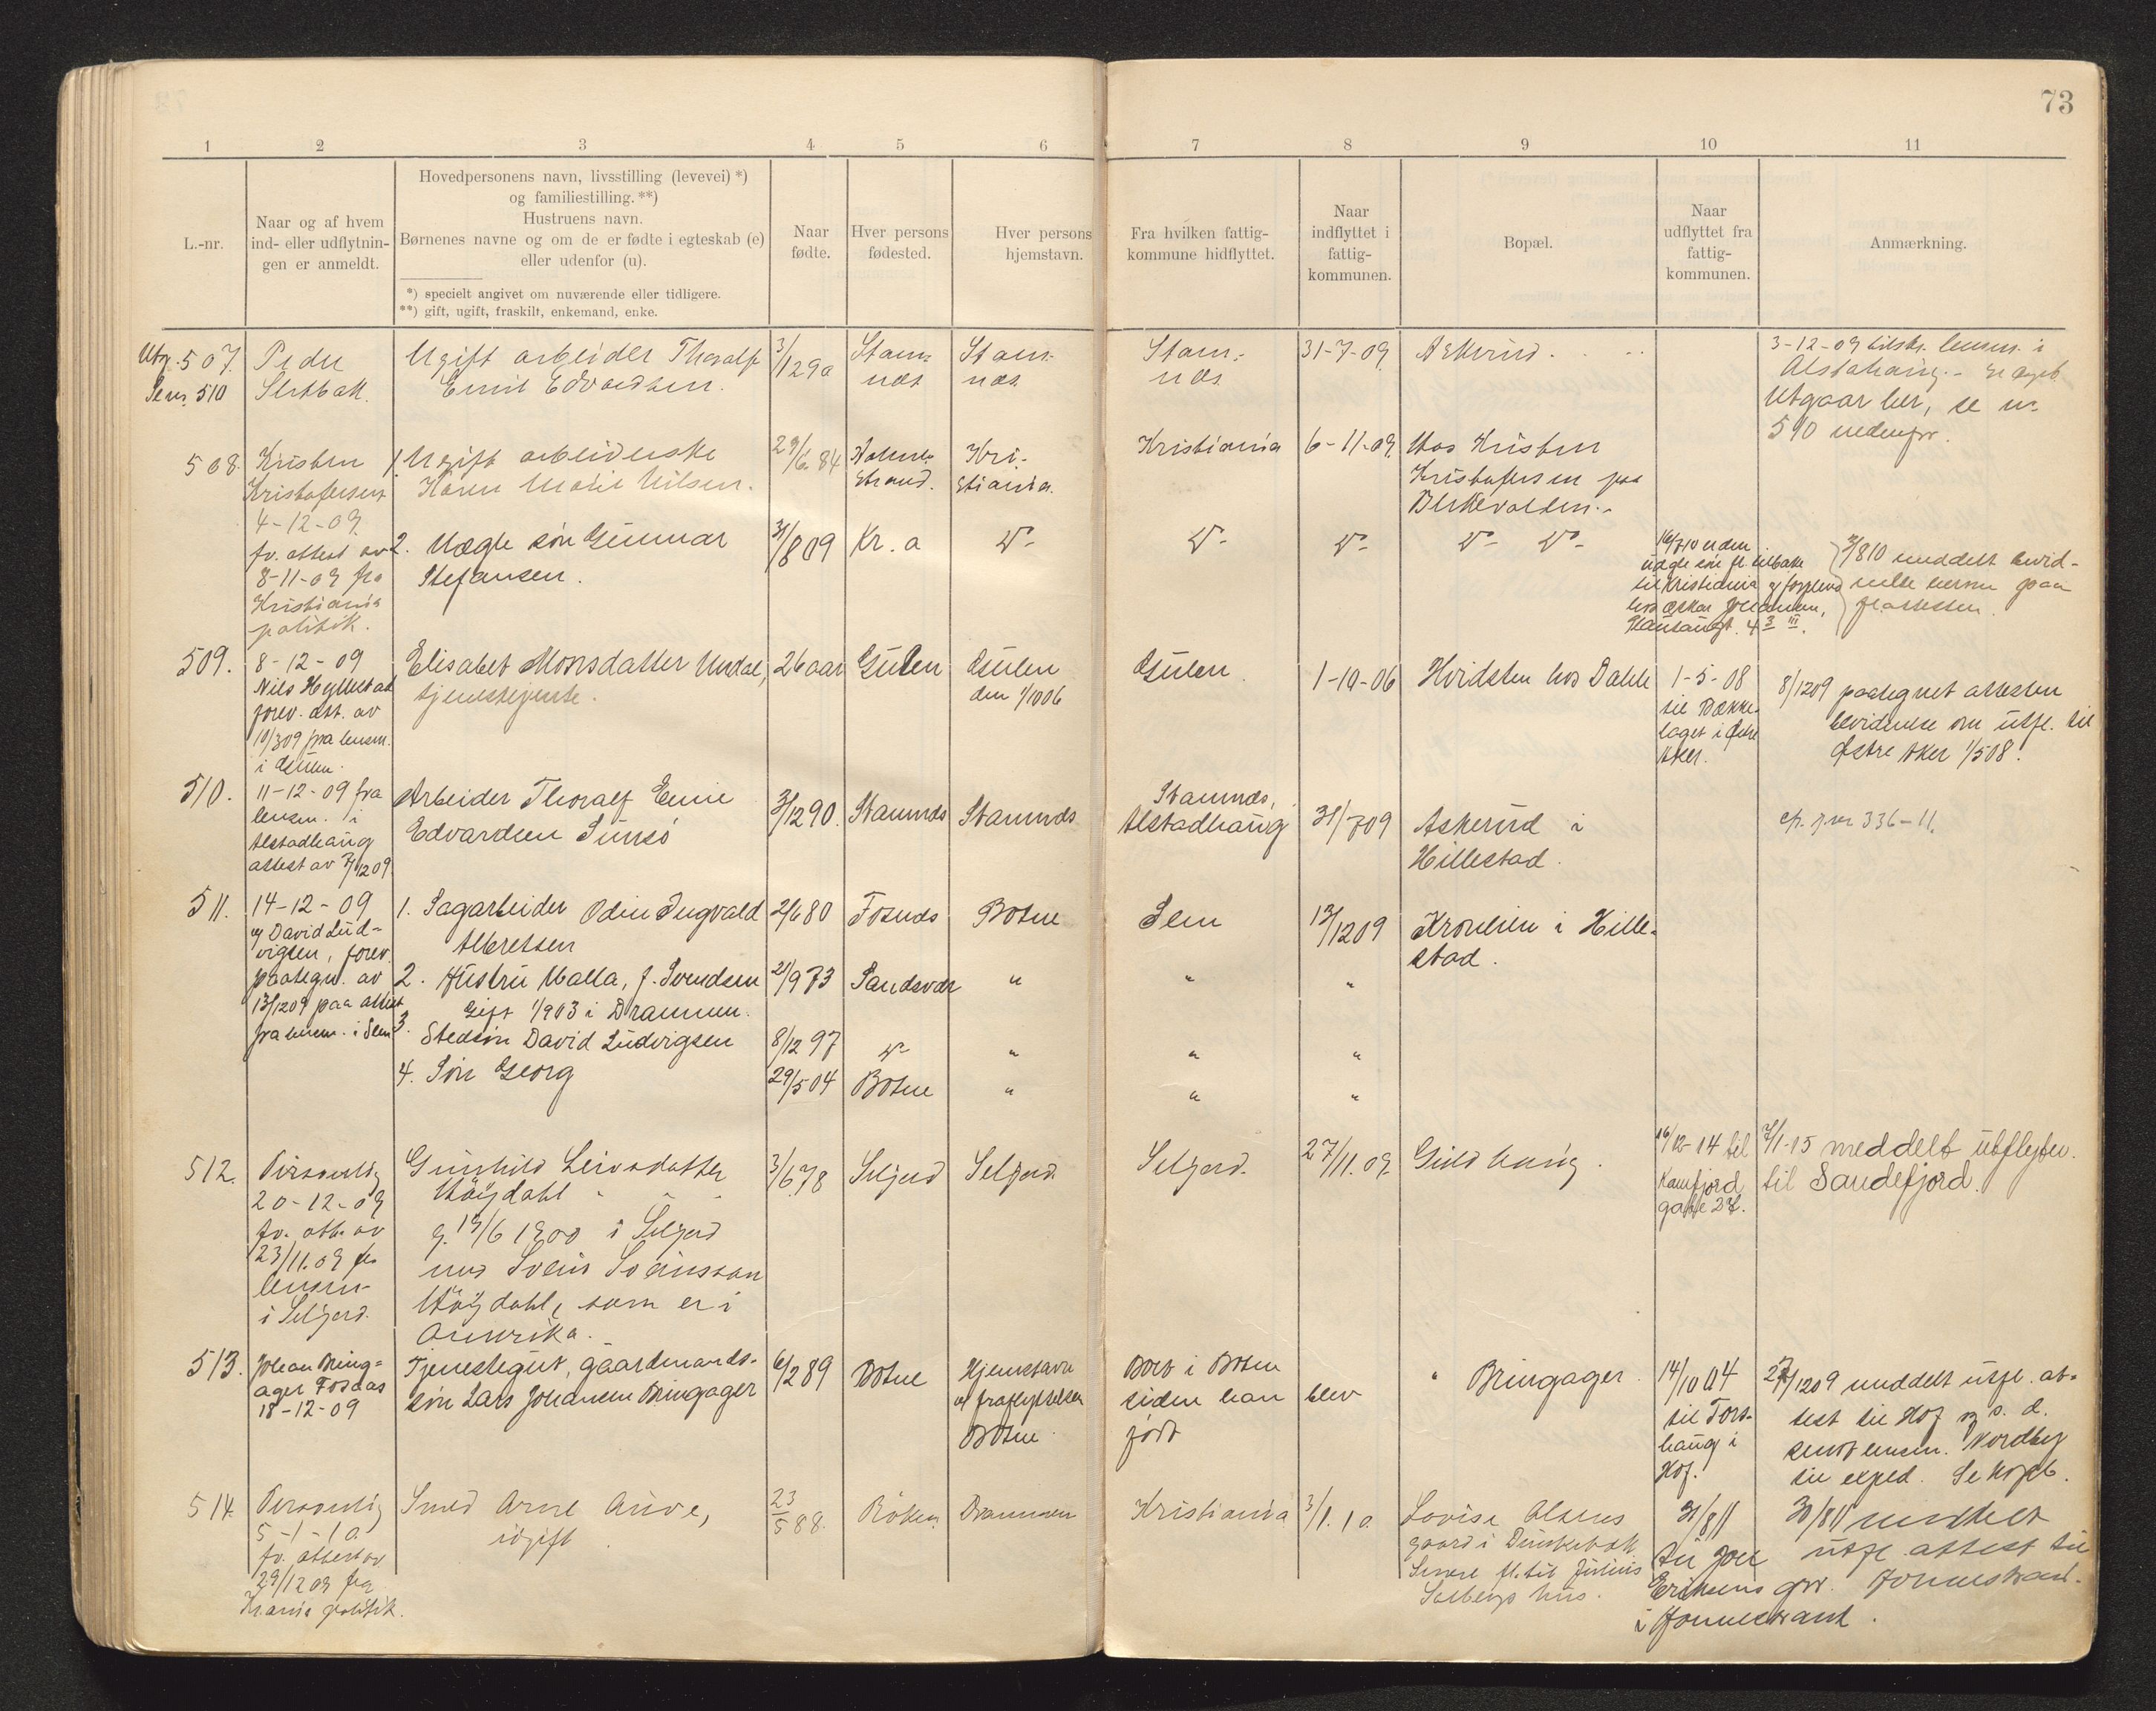 73
1 2 3 4 5 6 7 8 9 10 11
L.-nr.
Naar og af hvem
ind- eller udflytnin-
gen er anmeldt.
Hovedpersonens navn, livsstilling (levevei) *)
og familiestilling. **)
Hustruens navn.
Børnenes navne og om de er fødte i egteskab (e)
eller udenfor (u).
*) specielt angivet om nuværende eller tidligere.
**) gift, ugift, fraskilt, enkemand, enke.
Naar
fødte.
Hver persons
fødested.
Hver persons
hjemstavn.
Fra hvilken fattig-
kommune hidflyttet.
Naar
indflyttet i
fattig-
kommunen.
Bopæl.
Naar
udflyttet fra
fattig-
kommunen.
Anmærkning.
Utg. 507.
510
Ugift arbeider Thoralf
Emil Edvardsen.
3/12 90
Stam-
nes
Stam-
nes
Stam-
nes
31-7-09
Askerud.
3-12-09 tilskr. lensm. i
Alstahaug.
Utgaar her, se nr.
510 nedenfor.
508.
Kristen
Kristofersen
4-12-09.
fv. attest av
8-11-09 fra
Kristiania
politik.
1. Ugift arbeiderske
Karen Marie Nilsen.
29/6 84
Holme-
strand.
Kri-
stiania.
Kristiania
6-11-09.
Hos Kristen
Kristofersen paa
2. Uægte søn Gunnar
Stefansen.
31/8 09
Kr.a
16/7 10 er den
uægte søn fl. tilbake
til Kristiania og
hos Oskar Johansen,
4 3 III.
3/8 10 meddelt bevid-
nelse herom paa
fl.attesten.
509.
8-12-09
Nils Hyllestad
forev. att. av
10/3 09 fra lensm.
i Gulen.
Elisabet Monsdatter Undal,
tjenestepente.
26 aar
Gulen
Gulen
den 1/10 06
Gulen
1-10-06
Hvidsten hos Dahle
1-5-08
til Bække-
laget i Østre
Aker.
8/12 09 paategnet attesten
bevidnelse om utfl. til
Østre Aker 1/5 08.
510.
11-12-09 fra
lensm. i
Alstadhaug
attest av 7/12 09
Arbeider Thoralf Emil
Edvardsen
3/12 90.
Stamnes
Stamnes
Stamnes,
Alstadhaug
31/7 09
Askerud i
Hillestad.
336-11.
511.
14-12-09
og David Lud-
vigsen, forev.
paategn. av
13/12 09 paa attest
fra lensm. i Sem
1. Sagarbeider Odin Ingvald
Albretsen
2/6 80
Fosnes
Botne
Sem
13/12 09
i Hille-
stad.
2. Hustru Malla, f. Svendsen
Gift 1/9 03 i Drammen.
21/9 73
Sandsvær
"
"
"
3. Stedsøn David Ludvigsen
8/12 97
"
"
"
4. Søn Georg
29/5 04
Botne
"
"
"
512.
Personlig
20-12-09
fv. att. av
23/11.09 fra
lensm.
i Seljord.
Gunhild Leivsdatter
Høydahl
g. 19/6 1900 i Seljord
med Svein Sveinsson
Høydahl, som er i
Amerika.
3/6 78
Seljord
Seljord.
Seljord.
27/11.09.
Guldhaug.
16/12-14 til
Kamfjord
gate
7/1-15 meddelt utflytn.
til Sandefjord.
513.
Johan Bring-
ager Fosaas
18-12-09
Tjenestegut, gaardmands-
søn Lars Johansen Bringager
6/2 89
Botne
Hjemstavn
v/ fraflyttelsen
Botne
Boet i Botne
siden han blev
født
" Bringager.
14/10 04
til Tors-
haug i
Hof.
27/12 09 meddelt utfl. at-
test til Hof og s. d.
sendt lensm. Nordby
til exped. Se kopib.
514.
Personlig
5-1-10.
fv. attest av
29/12 09 fra
Kr.ania politik.
Smed Arne Auve,
ugift
23/5 88.
Røken
Drammen
Kristiania
3/1.10.
Lovise Olsens
gaard i Dunkebæk
Senere fl. til Julius
Solbergs hus.
31/8 11
til Joh
Eriksens grd.
i Holmestrand.
30/8 11 meddelt
utfl. attest til
Holmestrand.